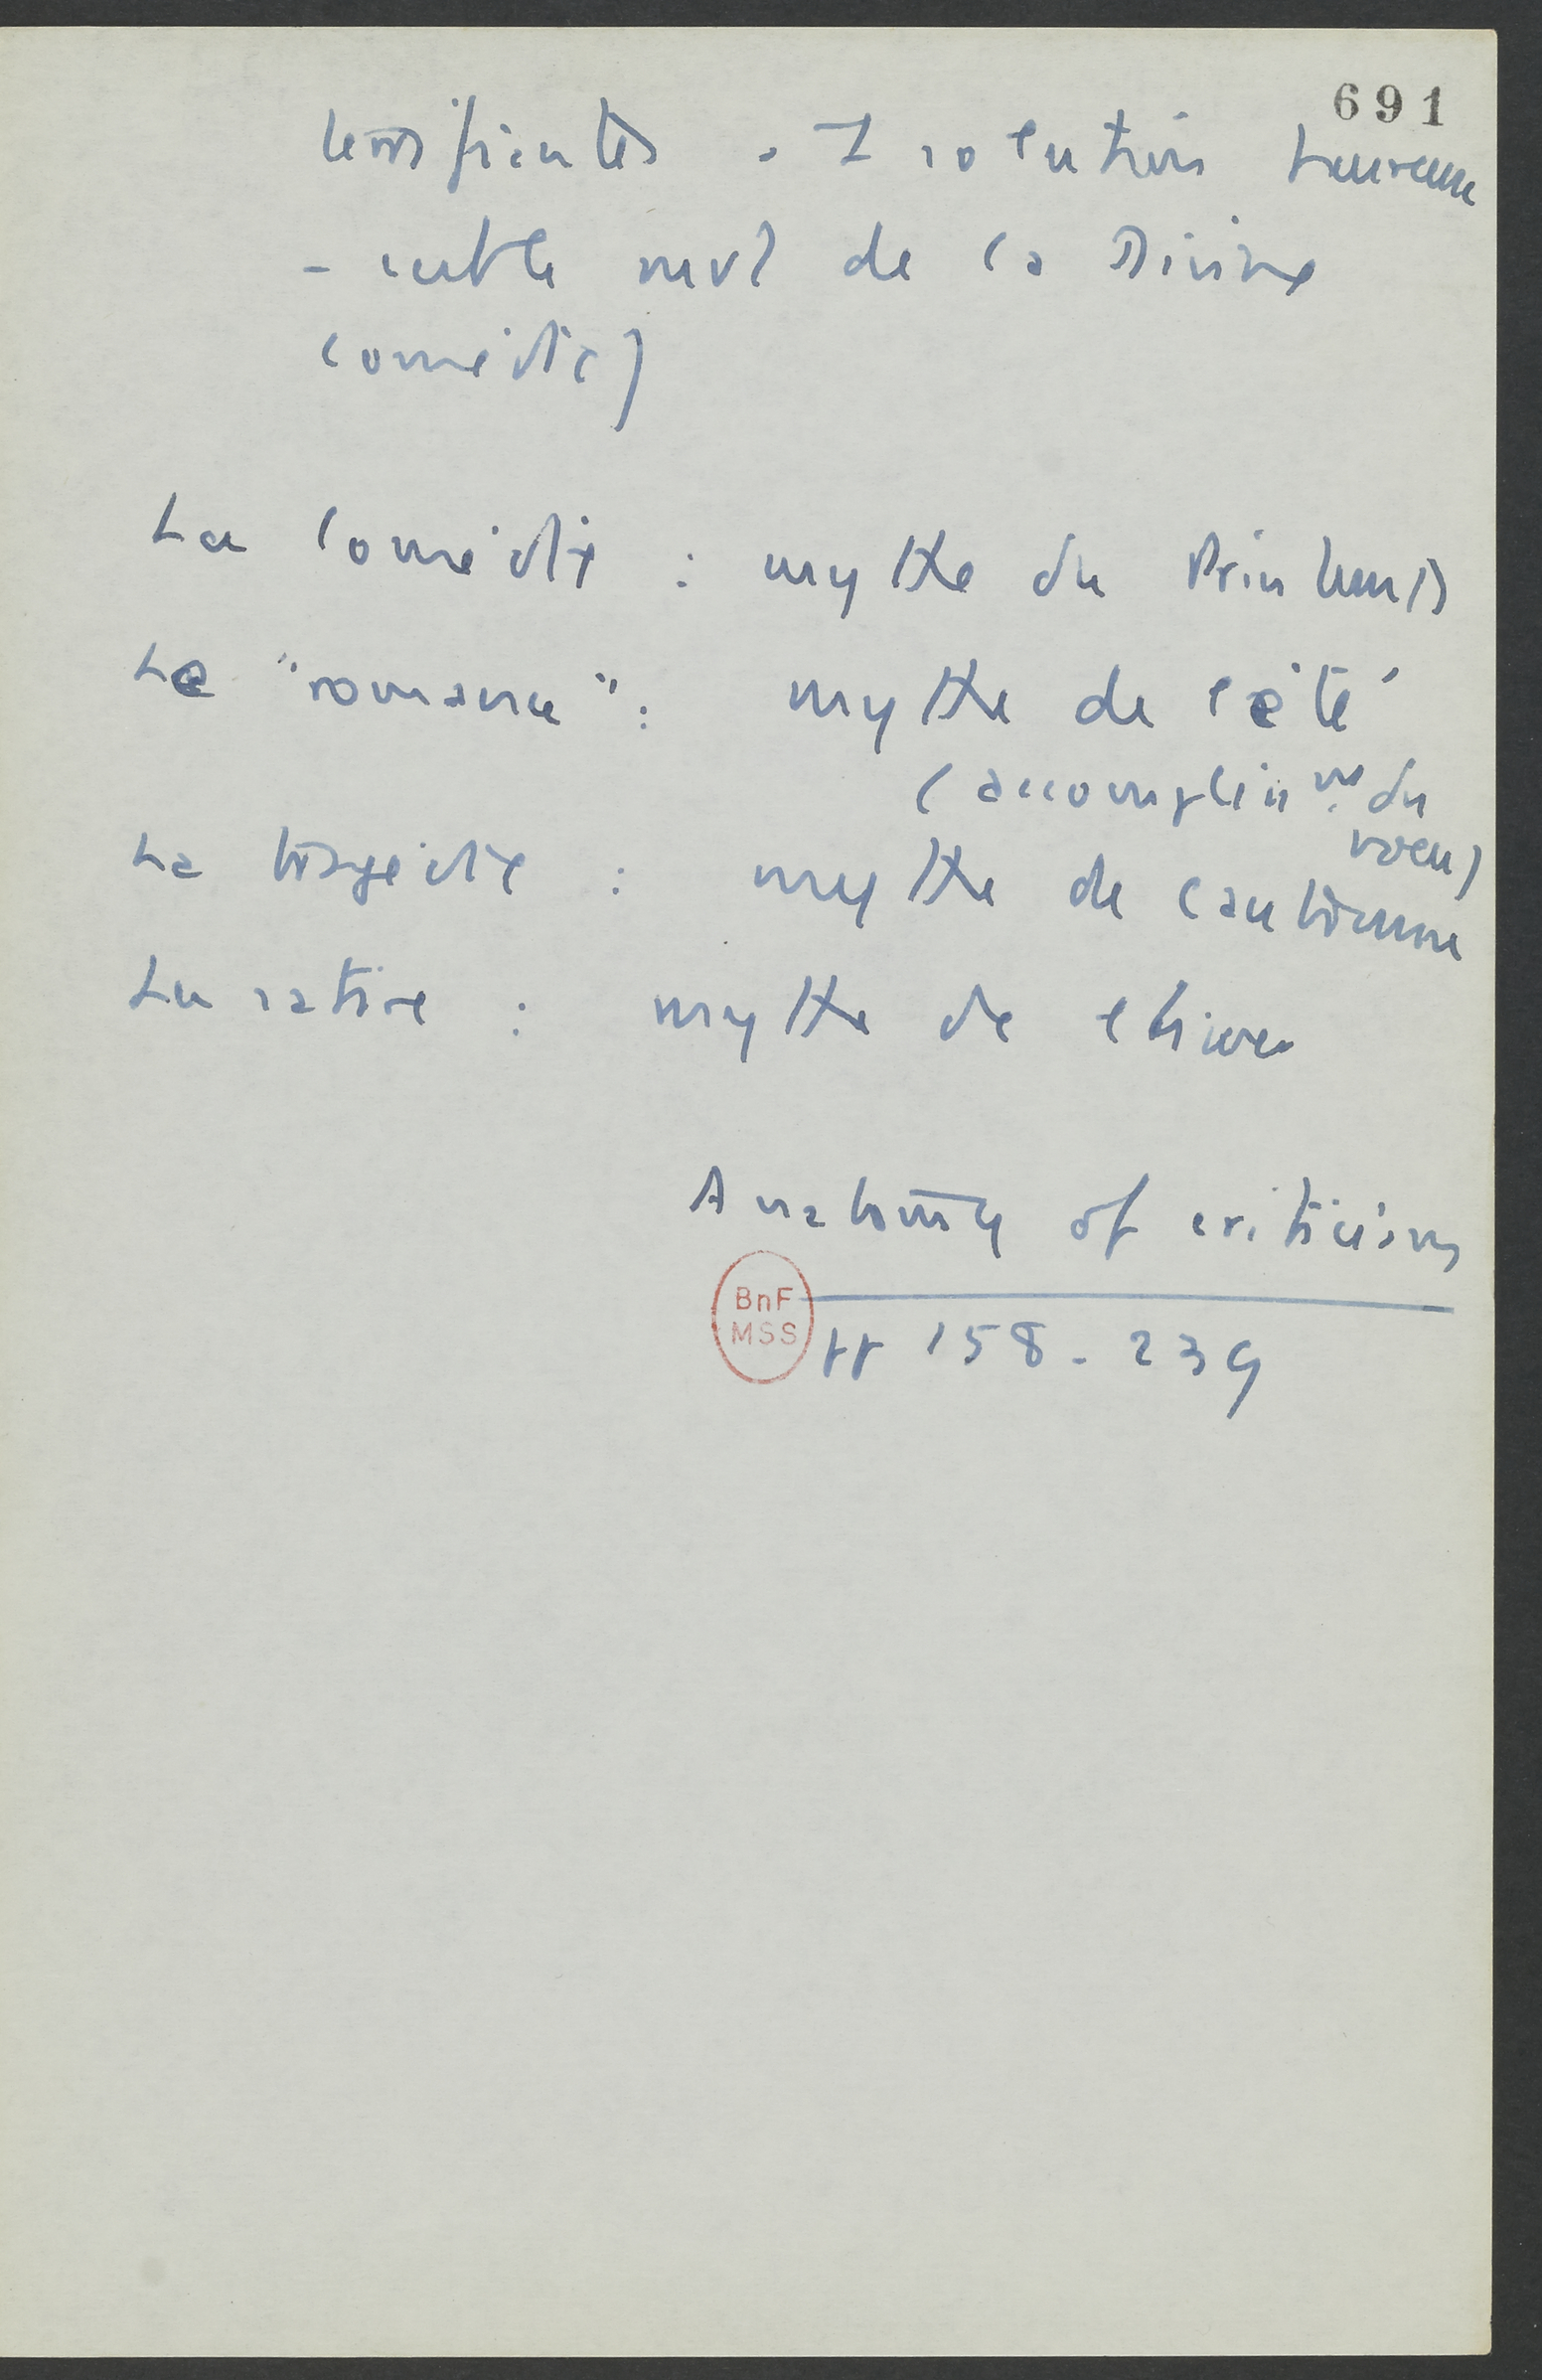 691
terrifiantes. I solution heureuse
- cuble de la Divine
Comédie)
La Comédie : mythe du Printemps
Le "romance" : mythe de l'été
(accompliss nt du
voeu)
La tragédie : mythe de l'automne
La satire : mythe de l'hiver
Anatomy of criticism
BnF
MSS
pp 158-239